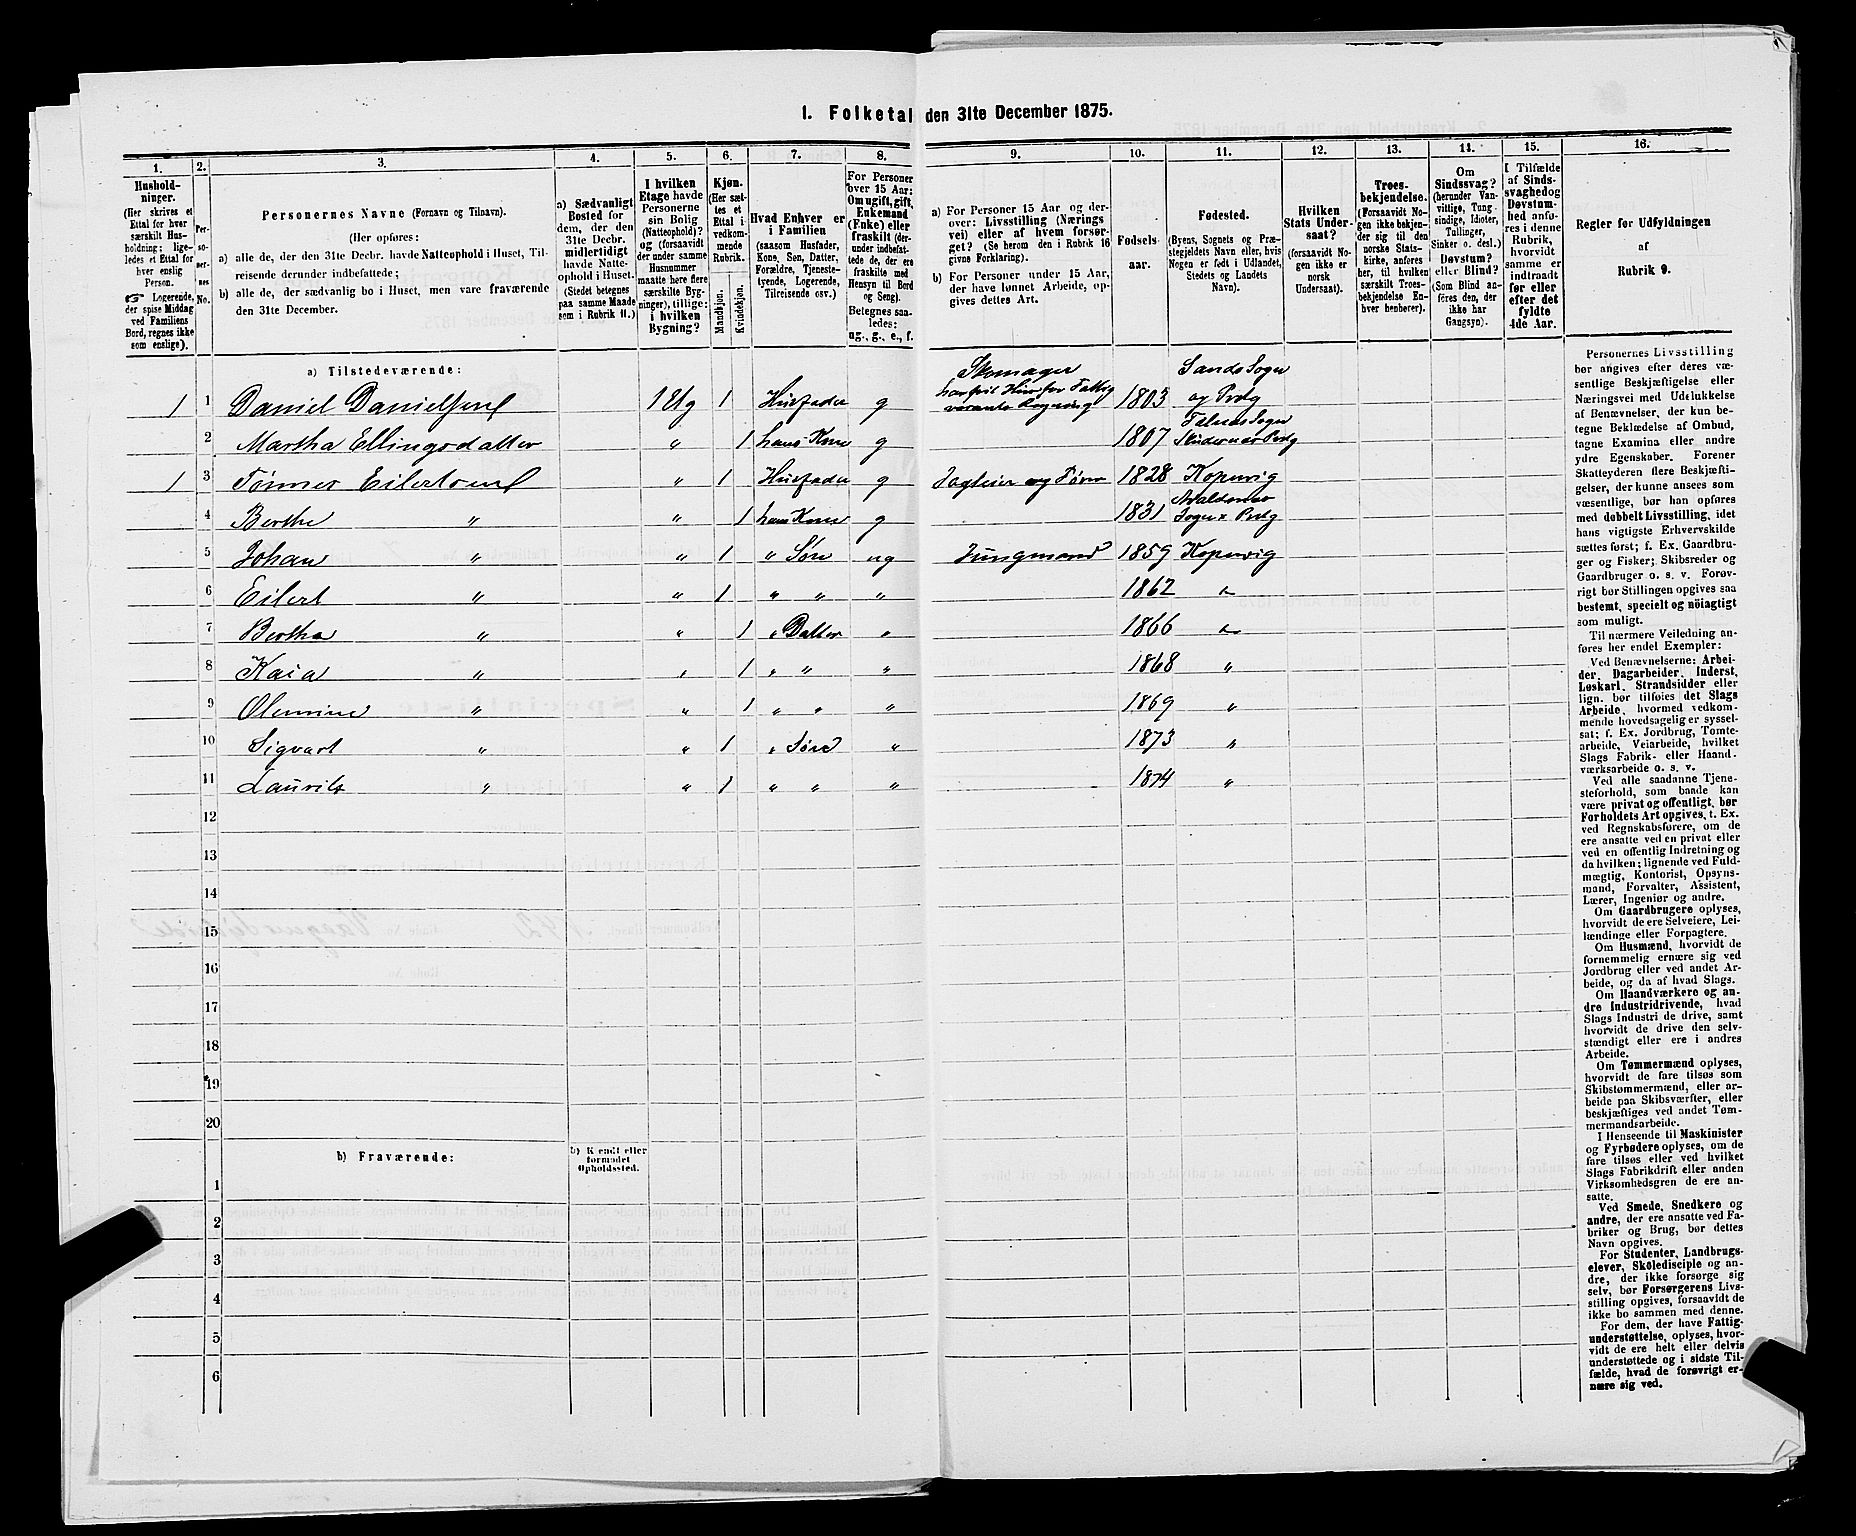 1. Folketal den 31te December 1875.
1.
2.
3.
4.
5.
6.
7.
8.
9.
10.
11.
12.
13.
14.
15.
16.
Hushold-
ninger.
(Her skrives et
Ettal for hver
særskilt Hus-
holdning; lige-
ledes et Ettal for
hver enslig
Person.
☞ Logerende,
der spise Middag
ved Familiens
Bord, regnes ikke
som enslige).
Per-
so-
ner-
nes
No.
Personernes Navne (Fornavn og Tilnavn).
(Her opføres:
a) alle de, der den 31te Decbr. havde Natteophold i Huset, Til-
reisende derunder indbefattede;
b) alle de, der sædvanlig bo i Huset, men vare fraværende
den 31te December.
a) Sædvanligt
Bosted for
dem, der den
31te Decbr.
midlertidigt
havde Natte-
ophold i Huset.
(Stedet betegnes
paa samme Maade
som i Rubrik 11.)
I hvilken
Etage havde
Personerne
sin Bolig
(Natteophold)?
og (forsaavidt
der under samme
Husnummer
maatte høre flere
særskilte Byg-
ninger), tillige:
i hvilken
Bygning?
Kjøn.
(Her sæt-
tes et
Ettal i
vedkom-
mende
Rubrik.
Mandkjøn.
Kvindekjøn.
Hvad Enhver er
i Familien
(saasom Husfader,
Kone, Søn, Datter,
Forældre, Tjeneste-
tyende, Logerende,
Tilreisende osv.)
For Personer
over 15 Aar:
Om ugift, gift,
Enkemand
(Enke) eller
fraskilt (der-
under indbefat-
tede de, der ere
fraskilte med
Hensyn til Bord
og Seng).
Betegnes saa-
ledes:
ug., g., e., f.
a) For Personer 15 Aar og der-
over: Livsstilling (Nærings
vei) eller af hvem forsør-
get? (Se herom den i Rubrik 16
givne Forklaring).
b) For Personer under 15 Aar,
der have lønnet Arbeide, op-
gives dettes Art.
Fødsels-
aar.
Fødested.
(Byens, Sognets og Præ-
stegjeldets Navn eller, hvis
Nogen er født i Udlandet,
Stedets og Landets
Navn).
Hvilken
Stats Under-
saat?
(forsaavidt No-
gen ikke er
norsk
Undersaat).
Troes-
bekjendelse.
(Forsaavidt No-
gen ikke bekjen-
der sig til den
norske Stats-
kirke, anføres
her, til hvilken
særskilt Troes-
bekjendelse En-
hver henhører).
Om
Sindssvag?
(herunder Van-
vittige, Tung-
sindige, Idioter,
Tullinger,
Sinker o. desl.)
Døvstum?
eller Blind?
(Som Blind an-
føres den, der
ikke har
Gangsyn).
I Tilfælde
af Sinds-
svaghed og
Døvstum-
hed anfø-
res i denne
Rubrik,
hvorvidt
samme er
indtraadt
før eller
efter det
fyldte
4de Aar.
Regler for Udfyldningen
af
Rubrik 9.
a) Tilstedeværende:
1 1 Daniel Danielsen 1 Etg 1 Husfader g Skomager 1803 Sands Sogn og Prdg
2 Martha Ellingsdatter " 1 hans Kone g 1807 Falnes Sogn Skudenæs Prdg
1 3 Tønnes Eilertsen " 1 Husfader g 1828 Kopervig
4 Berthe " " 1 hans Kone g 1831 Avaldsnes Sogn & Prdg
5 Johan " " 1 " Søn ug Jungmand 1859 Kopervig
6 Eilert " " 1 " " " 1862 "
7 Bertha " " 1 " Datter " 1866 "
8 Kaia " " 1 " " " 1868 "
9 Olemine " " 1 " " " 1869 "
10 Sigvart " " 1 " Søn " 1873 "
11 Laurits " " 1 " " " 1874 "
12
13
14
15
16
17
18
19
20
b) Fraværende:
b) Kjendt eller
formodet
Opholdssted.
1
2
3
4
5
6
Personernes Livsstilling
bør angives efter deres væ-
sentlige Beskjæftigelse eller
Næringsvei med Udelukkelse
af Benævnelser, der kun be-
tegne Beklædelse af Ombud,
tagne Examina eller andre
ydre Egenskaber. Forener
Skatteyderen flere Beskjæfti-
gelser, der kunne ansees som
væsentlige, bør han opføres
med dobbelt Livsstilling, idet
hans vigtigste Erhvervskilde
sættes først; f. Ex. Gaardbru-
ger og Fisker; Skibsreder og
Gaardbruger o. s. v. Forøv-
rigt bør Stillingen opgives saa
bestemt, specielt og nöiagtigt
som muligt.
Til nærmere Veiledning an-
føres her endel Exempler:
Ved Benævnelserne: Arbei-
der, Dagarbeider, Inderst,
Løskarl, Strandsidder eller
lign. bør tilføies det Slags
Arbeide, hvormed vedkom-
mende hovedsagelig er syssel-
sat; f. Ex. Jordbrug, Tomte-
arbeide, Veiarbeide, hvilket
Slags Fabrik- eller Haand-
værksarbeide o. s. v.
Ved alle saadanne Tjene-
steforhold, som baade kan
være privat og offentligt, bør
Forholdets Art opgives, t. Ex.
ved Regnskabsførere, om de
ere ansatte ved en privat eller
ved en offentlig Indretning og
da hvilken; lignende ved Fuld-
mægtig, Kontorist, Opsyns-
mand, Forvalter, Assistent,
Lærer, Ingeniør og andre.
Om Gaardbrugere oplyses,
hvorvidt de ere Selveiere, Lei-
lændinge eller Forpagtere.
Om Husmænd, hvorvidt de
fornemmelig ernære sig ved
Jordbrug eller ved andet Ar-
beide, og da af hvad Slags.
Om Haandværkere og an-
dre Industridrivende, hvad
Slags Industri de drive, samt
hvorvidt de drive den selv-
stændigt eller ere i andres
Arbeide.
Om Tømmermænd oplyses,
hvorvidt de fare tilsøs som
Skibstømmermænd, eller ar-
beide paa Skibsværfter, eller
beskjæftiges ved andet Tøm-
mermandsarbeide.
I Henseende til Maskinister
og Fyrbødere oplyses, om de
fare tilsøs eller ved hvilket
Slags Fabrikdrift eller anden
Virksomhedsgren de ere an-
satte.
Ved Smede, Snedkere og
andre, der ere ansatte ved Fa-
briker og Brug, bør dettes
Navn opgives.
For Studenter, Landbrugs-
elever, Skoledisciple og an-
dre, der ikke forsørge sig
selv, bør Forsørgerens Livs-
stilling opgives, forsaavidt de
ikke bo sammen med denne.
For dem, der have Fattig-
understøttelse, oplyses, hvor-
vidt de ere helt eller delvis
understøttede og i sidste Til-
fælde, hvad de forøvrigt er-
nære sig ved.